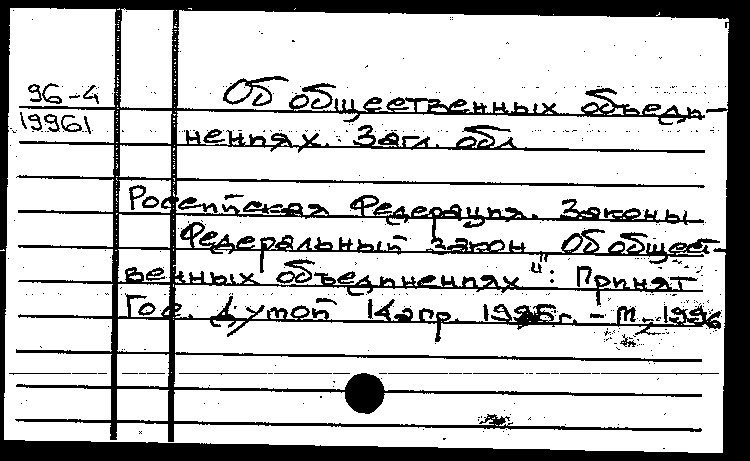 96-4
19961
Об общественных объеди-
нениях. Загл. обл.
Российская Федерация. Законы
Федеральный закон „Об общест-
венных объединениях": Принят
Гос. Думой 14 апр. 1995г. - М., 1996